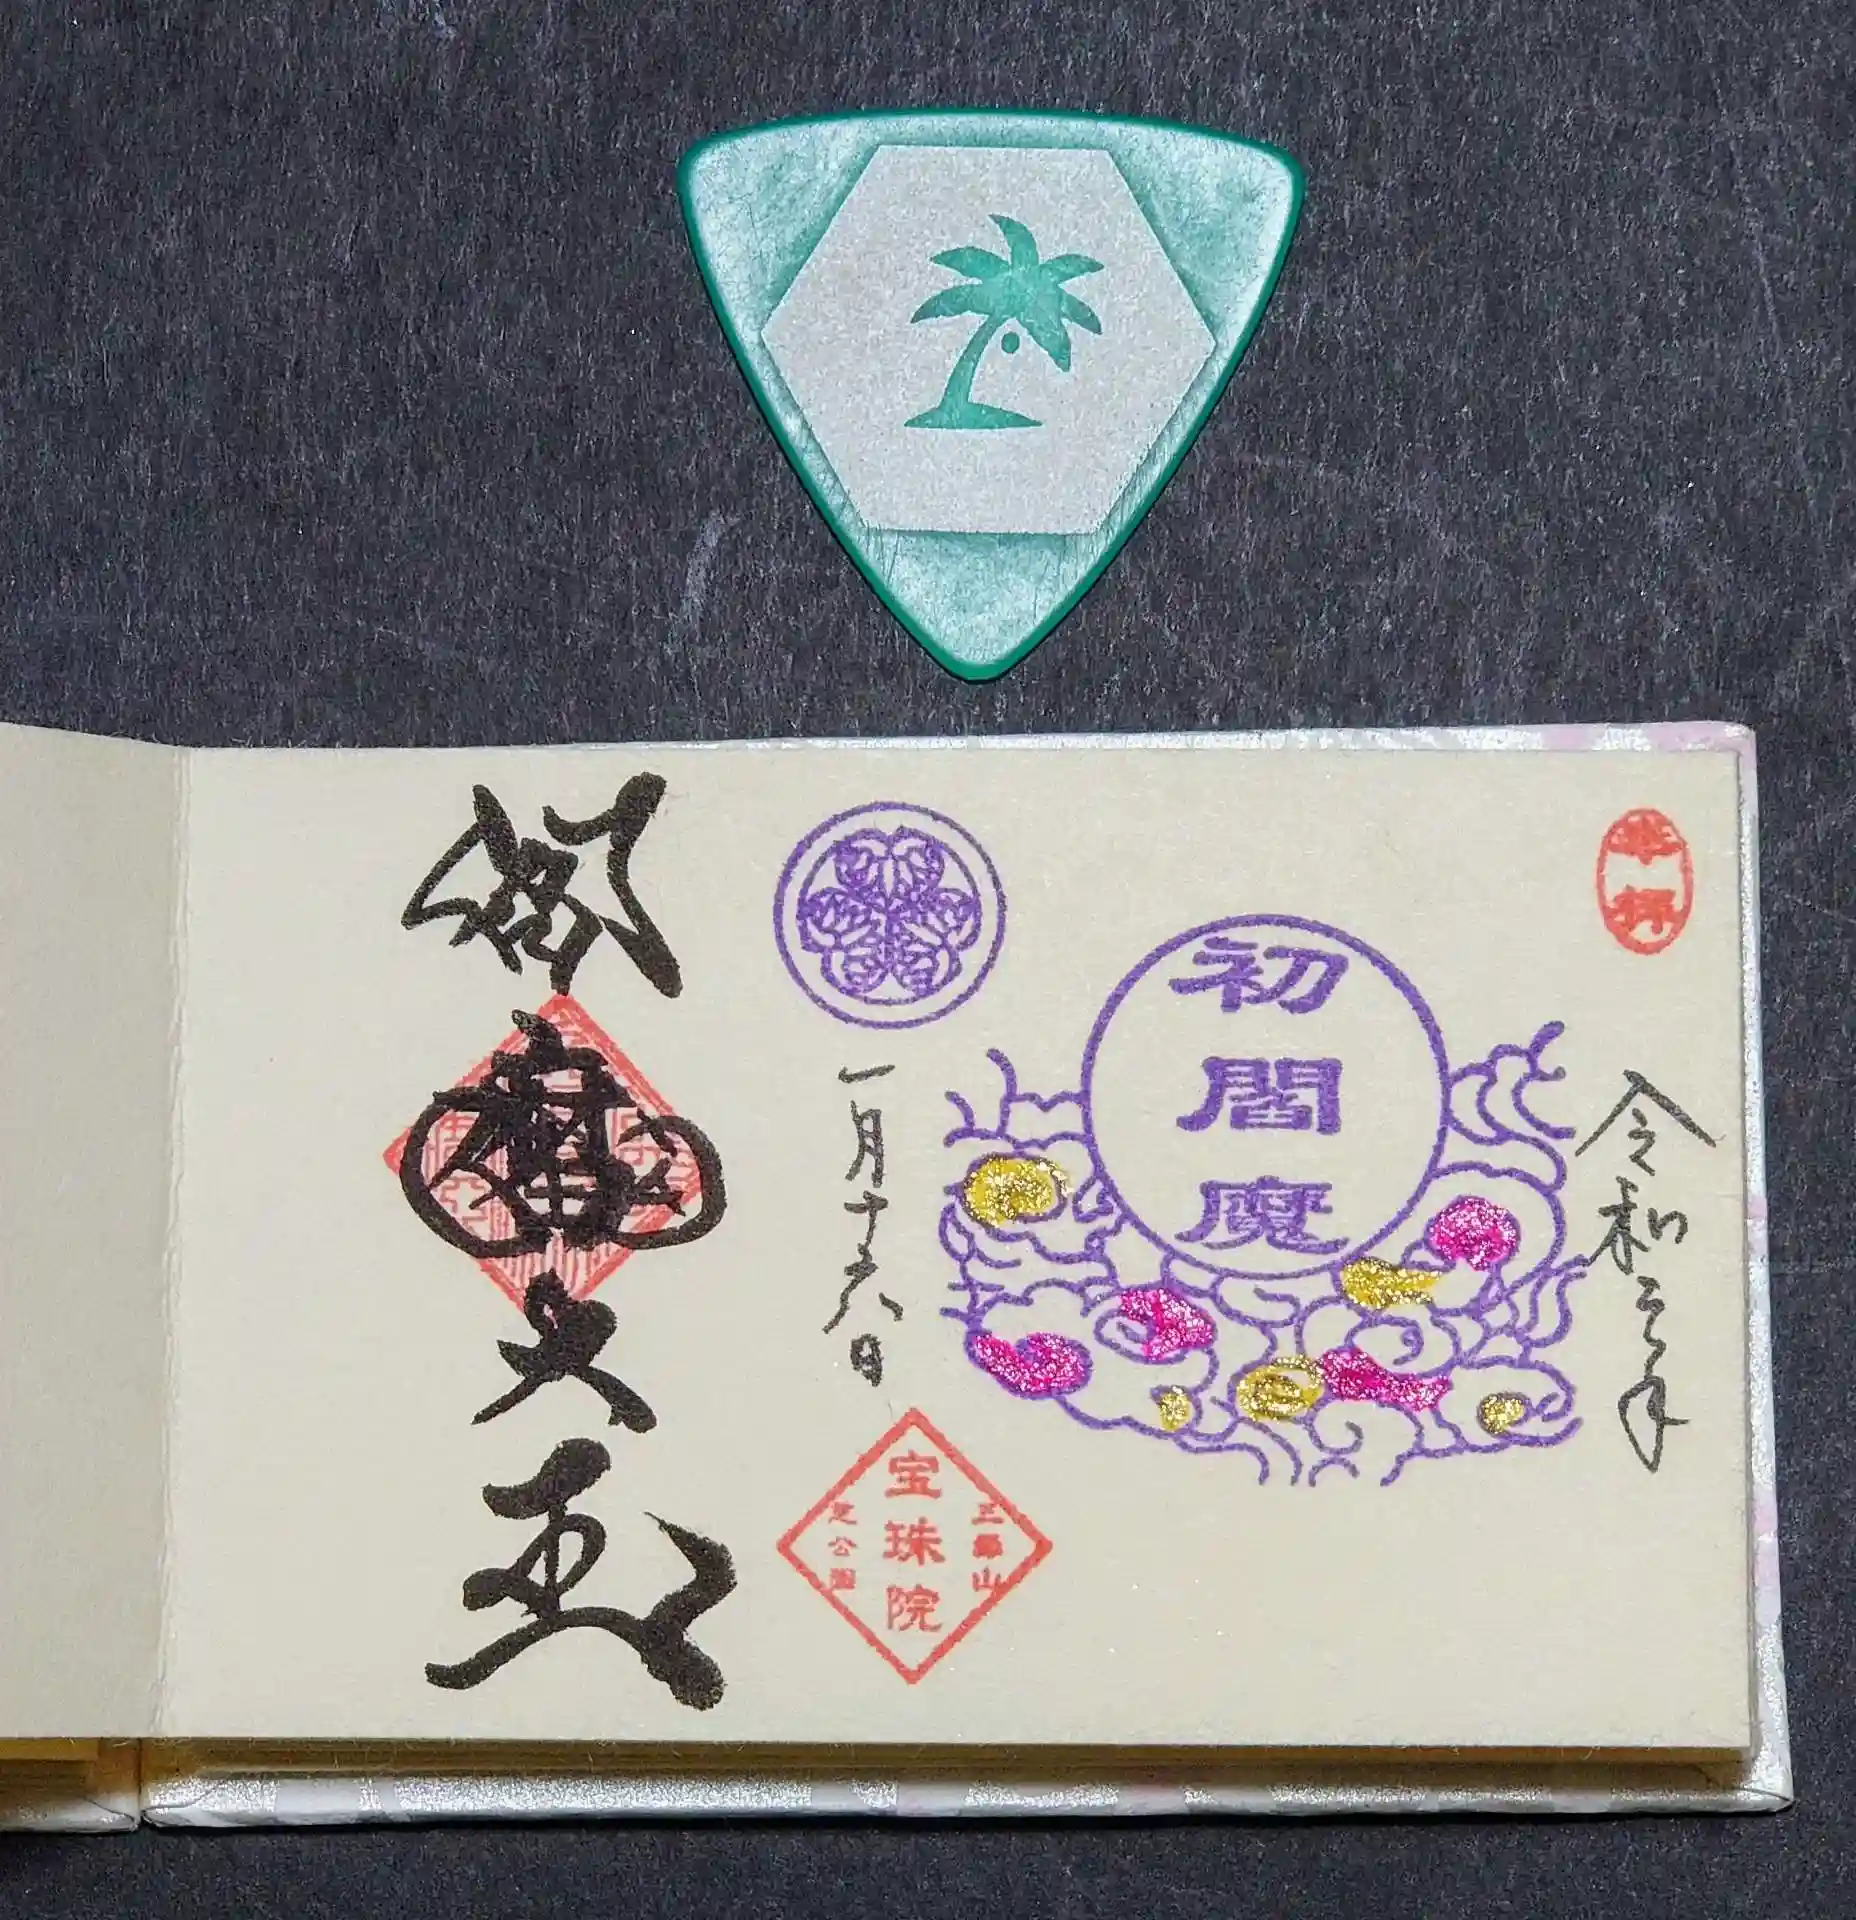 奉拝
令和三年
初閻魔
一月十六日
三縁山
宝珠院
芝公園
閻魔大王